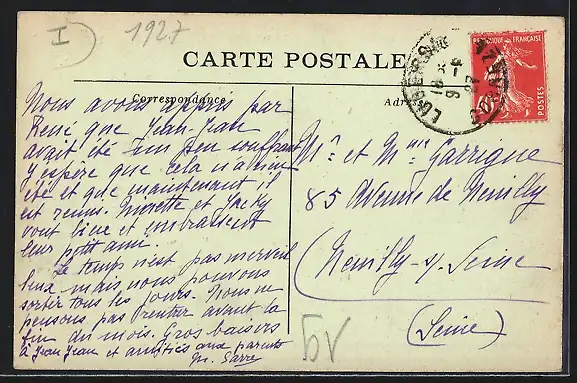 I) 1927
CARTE POSTALE
Correspondance
Adres
RÉPUBLIQUE FRANÇAISE
POSTES
Nous avons appris par
René que Jean-Jean
avait été un peu souffrant
J'espère que cela n'a rien
été et que maintenant il
est remis. Ninette et Jacky
vont bien et embrassent
leur petit ami.
Le temps n'est pas merveil
leux mais nous pouvons
sortir tous les jours. Nous ne
pensons pas rentrer avant la
fin du mois. Gros baisers
à Jean Jean et amitiés aux parents
M. Sarre
Mr et Mme Garrigue
85 Avenue de Neuilly
Neuilly-s/Seine
(Seine)